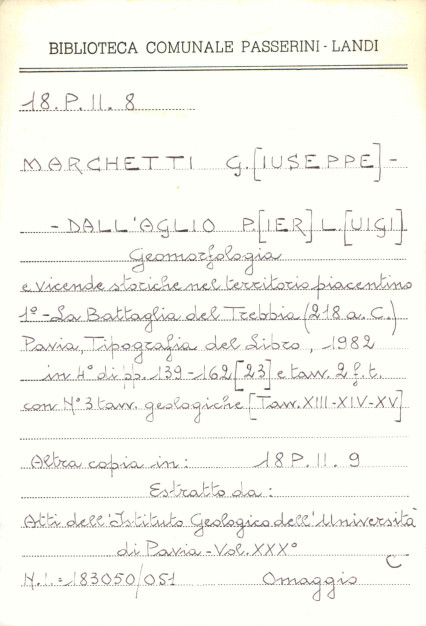 BIBLIOTECA COMUNALE PASSERINI - LANDI
18.P.II. 8
MARCHETTI G.[IUSEPPE] -
- DALL'AGLIO P.[IER] L.[UIGI]
Geomorfologia
e vicende storiche nel territorio piacentino
1º - La Battaglia del Trebbia (218 a. C.)
Pavia, Tipografia del Libro, 1982
in 4º di pp. 139-162 [23] e tav. 2 f. t.
con Nº 3 tav. geologiche [Tav. XIII-XIV-XV]
Altra copia in: 18 P. II. 9
Estratto da:
Atti dell'Istituto Geologico dell'Università
di Pavia - Vol. XXXº
C
N.i. = 183050/051 Omaggio